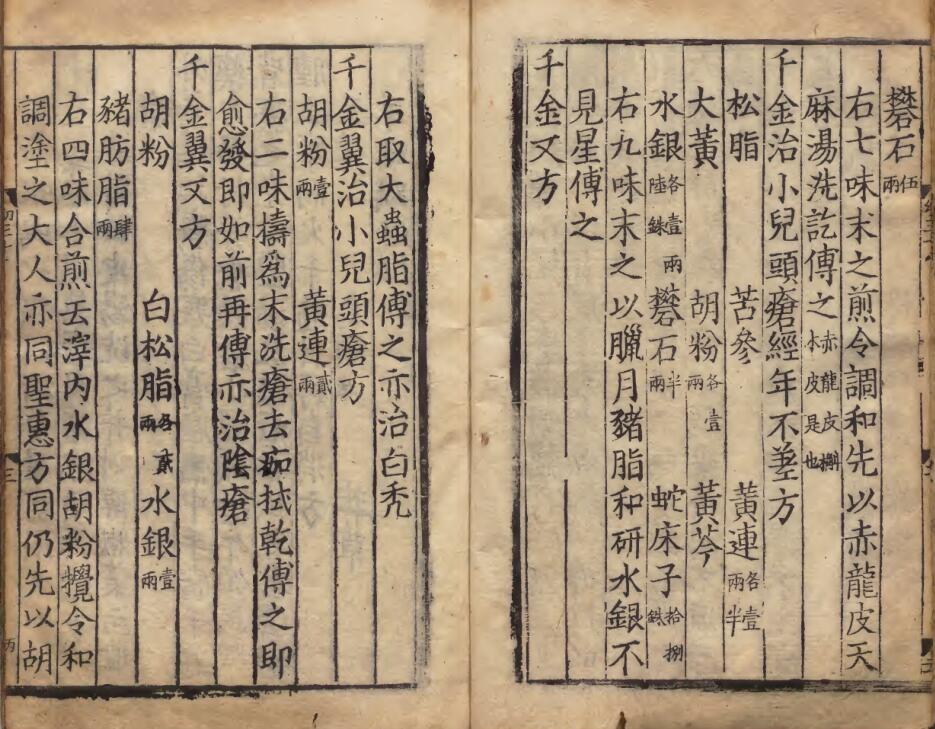 礬石伍兩
右七味末之煎令調和先以赤龍皮天
麻湯洗訖傅之赤龍皮槲木皮是也
千金治小兒頭瘡經年不差方
松脂 苦參 黃連各壹兩半
大黃 胡粉各壹兩 黃芩
水銀各壹兩陸銖 礬石半兩 蛇床子拾捌銖
右九味末之以臘月豬脂和研水銀不
見星傅之
千金又方
右取大蟲脂傅之亦治白禿
千金翼治小兒頭瘡方
胡粉壹兩 黃連貳兩
右二味擣為末洗瘡去痂拭乾傅之即
愈發即如前再傅亦治陰瘡
千金翼又方
胡粉 白松脂各貳兩 水銀壹兩
豬肪脂肆兩
右四味合煎去滓內水銀胡粉攪令和
調塗之大人亦同聖惠方同仍先以胡